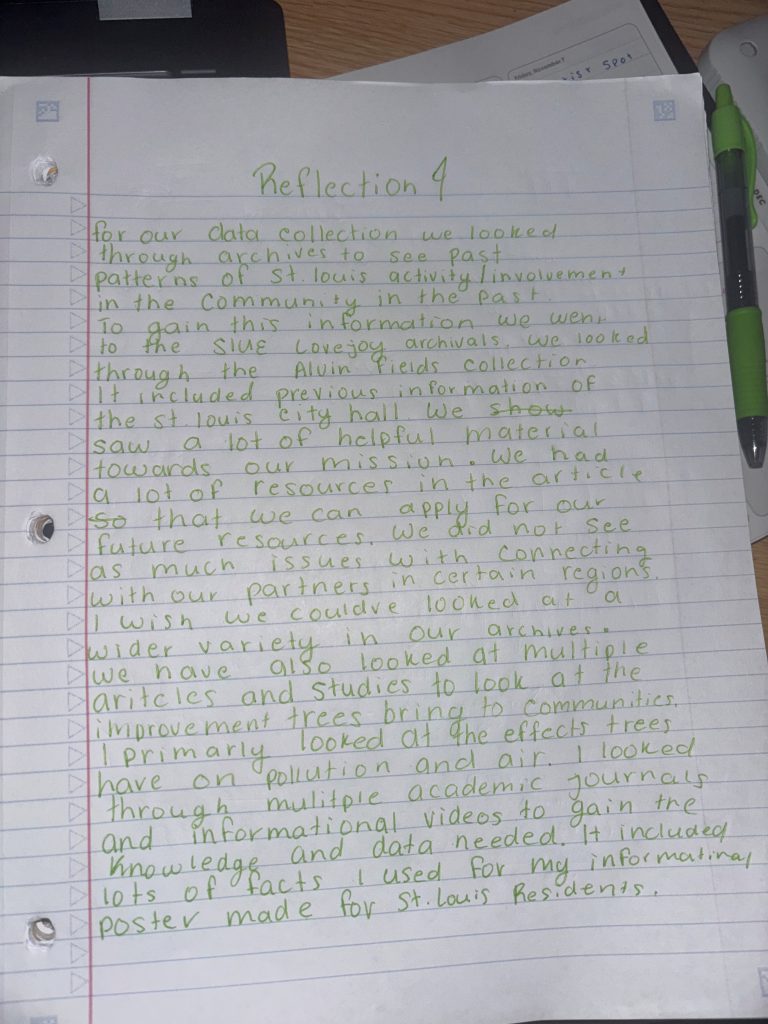 Friday, November 7
ist Spot
DEC
Reflection 4
for our data collection we looked
through archives to see past
patterns of St. louis activity/involvement
in the community in the past.
To gain this information we went
to the SIUE Lovejoy archivals. we looked
through the Alvin fields collection
It included previous information of
the st. louis city hall. We show
saw a lot of helpful material
towards our mission. We had
a lot of resources in the article
so that we can apply for our
future resources. We did not see
as much issues with connecting
with our partners in certain regions.
I wish we couldve looked at a
wider variety in our archives.
we have also looked at multiple
aritcles and studies to look at the
improvement trees bring to communities.
I primarly looked at the effects trees
have on pollution and air. I looked
through mulitple academic journals
and informational videos to gain the
knowledge and data needed. It included
lots of facts I used for my informatinal
poster made for St. Louis Residents.